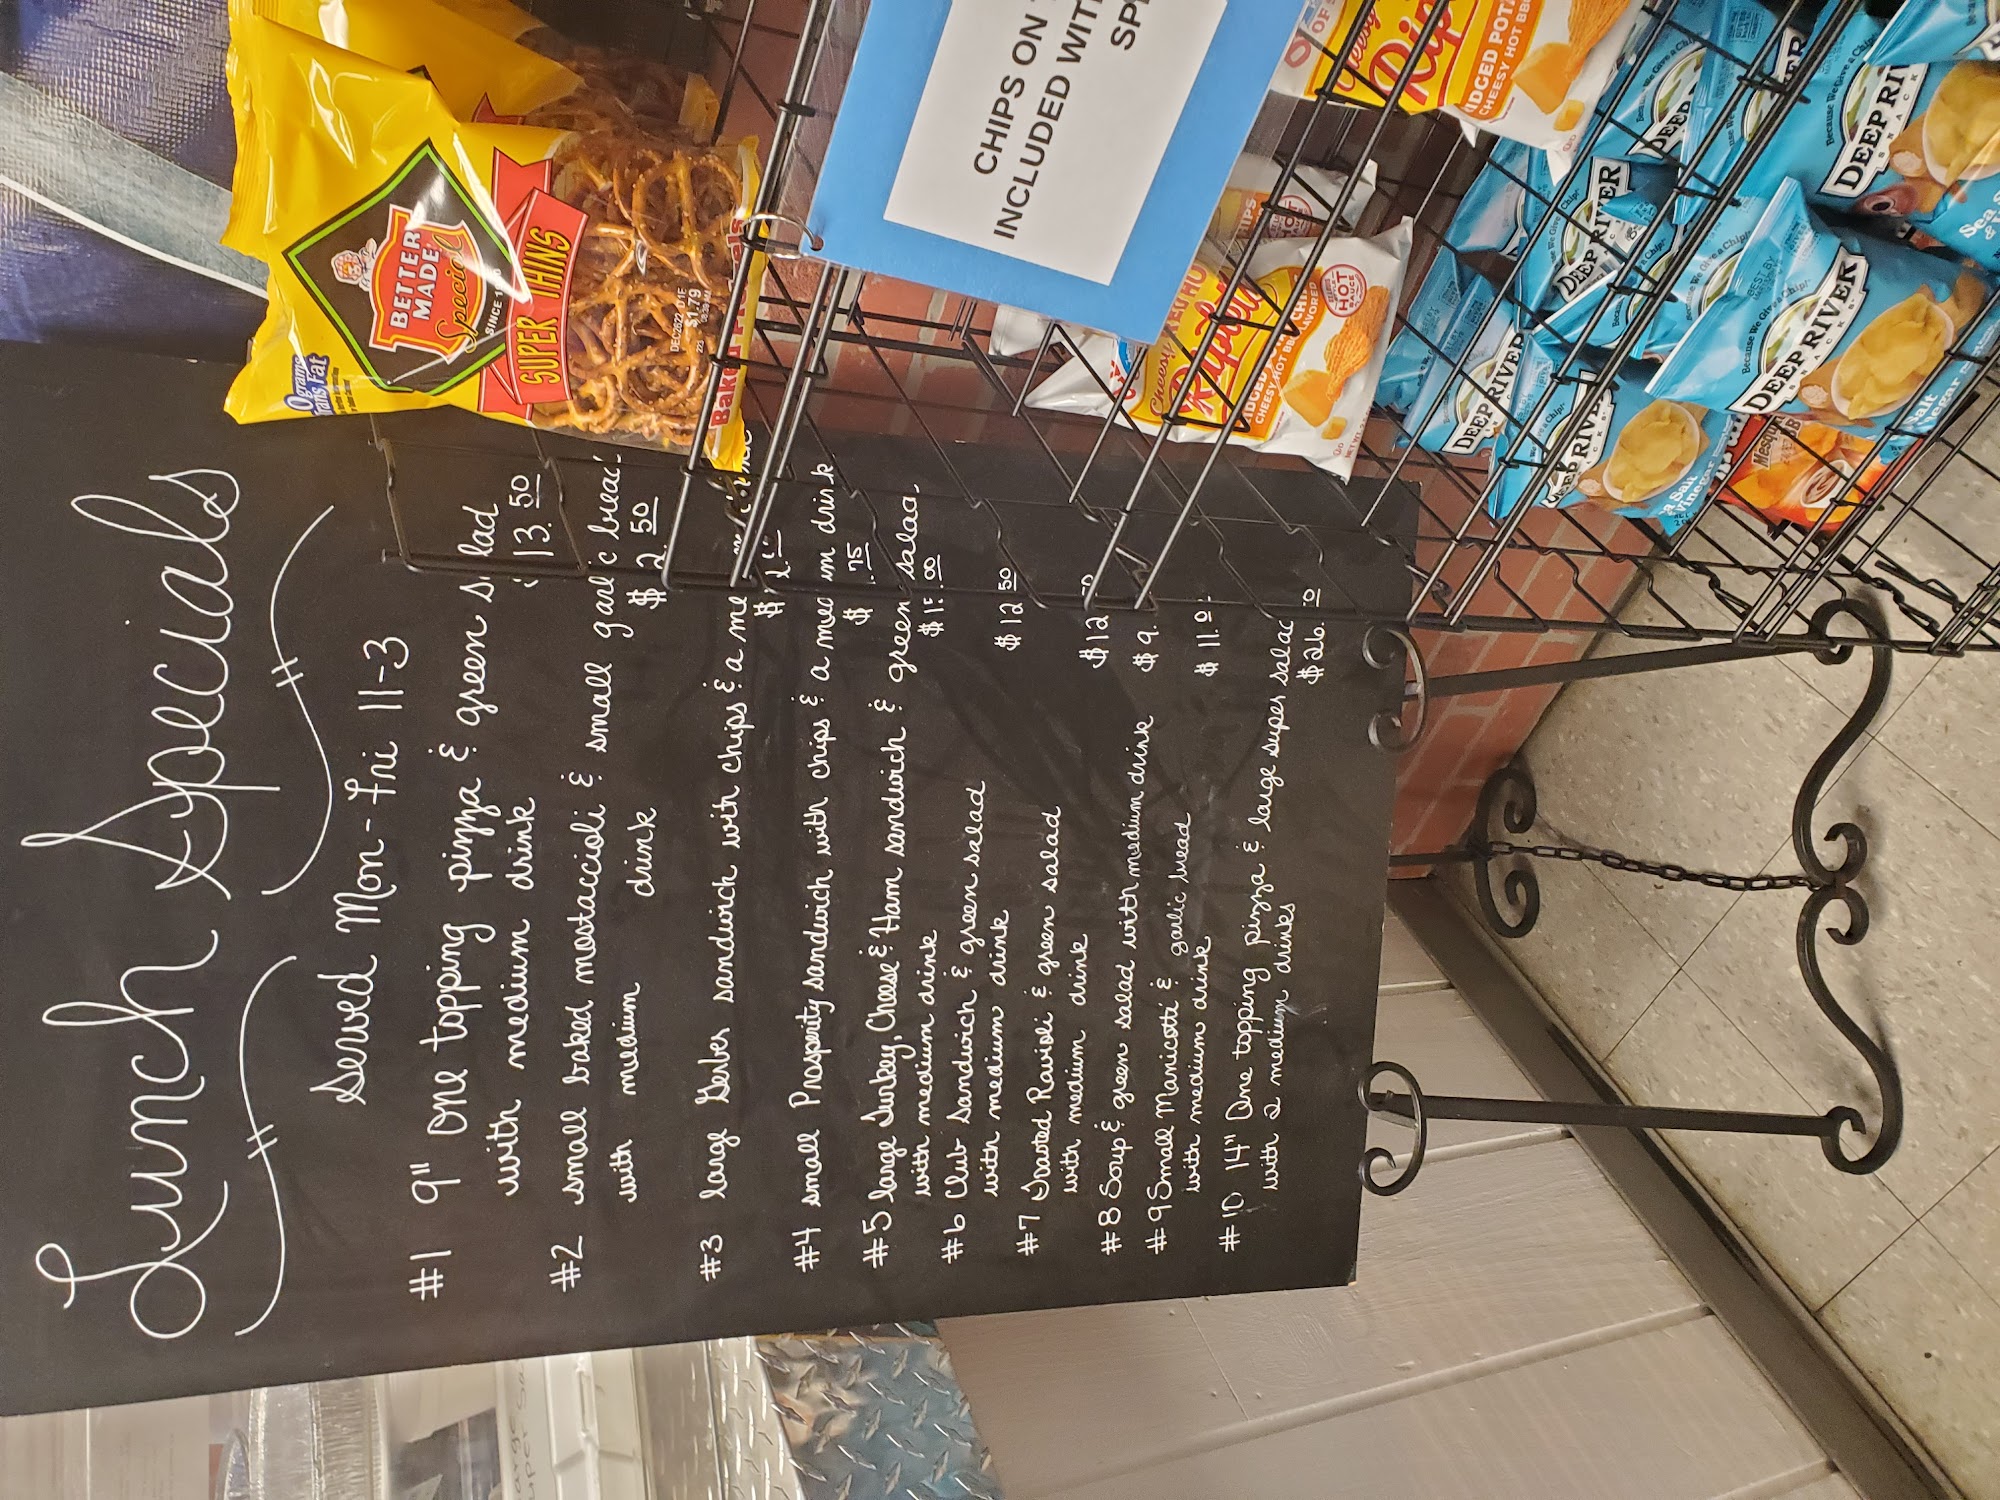 Lunch Specials
Served Mon-Fri 11-3
#1 9" one topping pizza & green
with medium drink 13.50
#2 small baked mostaccioli & small garlic
with medium drink $ 2.50
#3 large Gerber sandwich with chips & a
$
#4 small Prosperity sandwich with chips & a drink
$ .75
#5 large Turkey, Cheese & Ham sandwich & green
with medium drink $ .00
#6 Club Sandwich & green salad
with medium drink $12.50
#7 Toasted Ravioli & green salad
with medium drink $12
#8 Soup & green salad with medium drink $9.
#9 Small Manicotti & garlic bread
with medium drink $11.
#10 14" One topping pizza & large super
with 2 medium drinks $26.
0 grams
Trans Fat
BETTER
MADE
Special
SINCE
SUPER THINS
DEC2622
$1.79
CHIPS ON
INCLUDED WITH
Ripley
CHEESY HOT
HOT
Ripl
CHEESY HOT BBQ
FLAVORED
HOT
Because We Give a Chip!
DEEP RIVER
SNACKS
DEEP RIVER
DEEP RIVER
DEEP RIVER
BEST BY
Because We Give a Chip!
DEEP RIVER
SNACKS
Salt
Vinegar